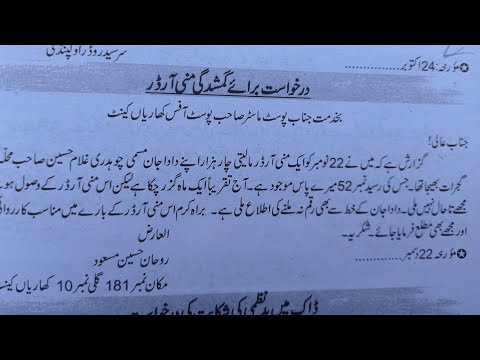 سرسید روڈ راولپنڈی
✪ مؤرخہ: 24 اکتوبر ................
درخواست برائے گمشدگی منی آرڈر
بخدمت جناب پوسٹ ماسٹر صاحب پوسٹ آفس کھاریاں کینٹ
جناب عالی!
گزارش ہے کہ میں نے 22 نومبر کو ایک منی آرڈر مالیتی چار ہزار اپنے دادا جان مسمی چوہدری غلام حسین صاحب محلہ
گجرات بھیجا تھا۔ جس کی رسید نمبر 52 میرے پاس موجود ہے۔ آج تقریباً ایک ماہ گزر چکا ہے لیکن اس منی آرڈر کے وصول ہو
مجھے تا حال نہیں ملی۔ دادا جان کے خط سے بھی رقم نہ ملنے کی اطلاع ملی ہے۔ براہ کرم اس منی آرڈر کے بارے میں مناسب کارروائی
اور مجھے بھی مطلع فرمایا جائے۔ شکریہ۔
العارض
✪ مؤرخہ 22 دسمبر ................
روحان حسین مسعود
مکان نمبر 181 گلی نمبر 10 کھاریاں کینٹ
ڈاک میں بدنظمی کی شکایت کی درخواست